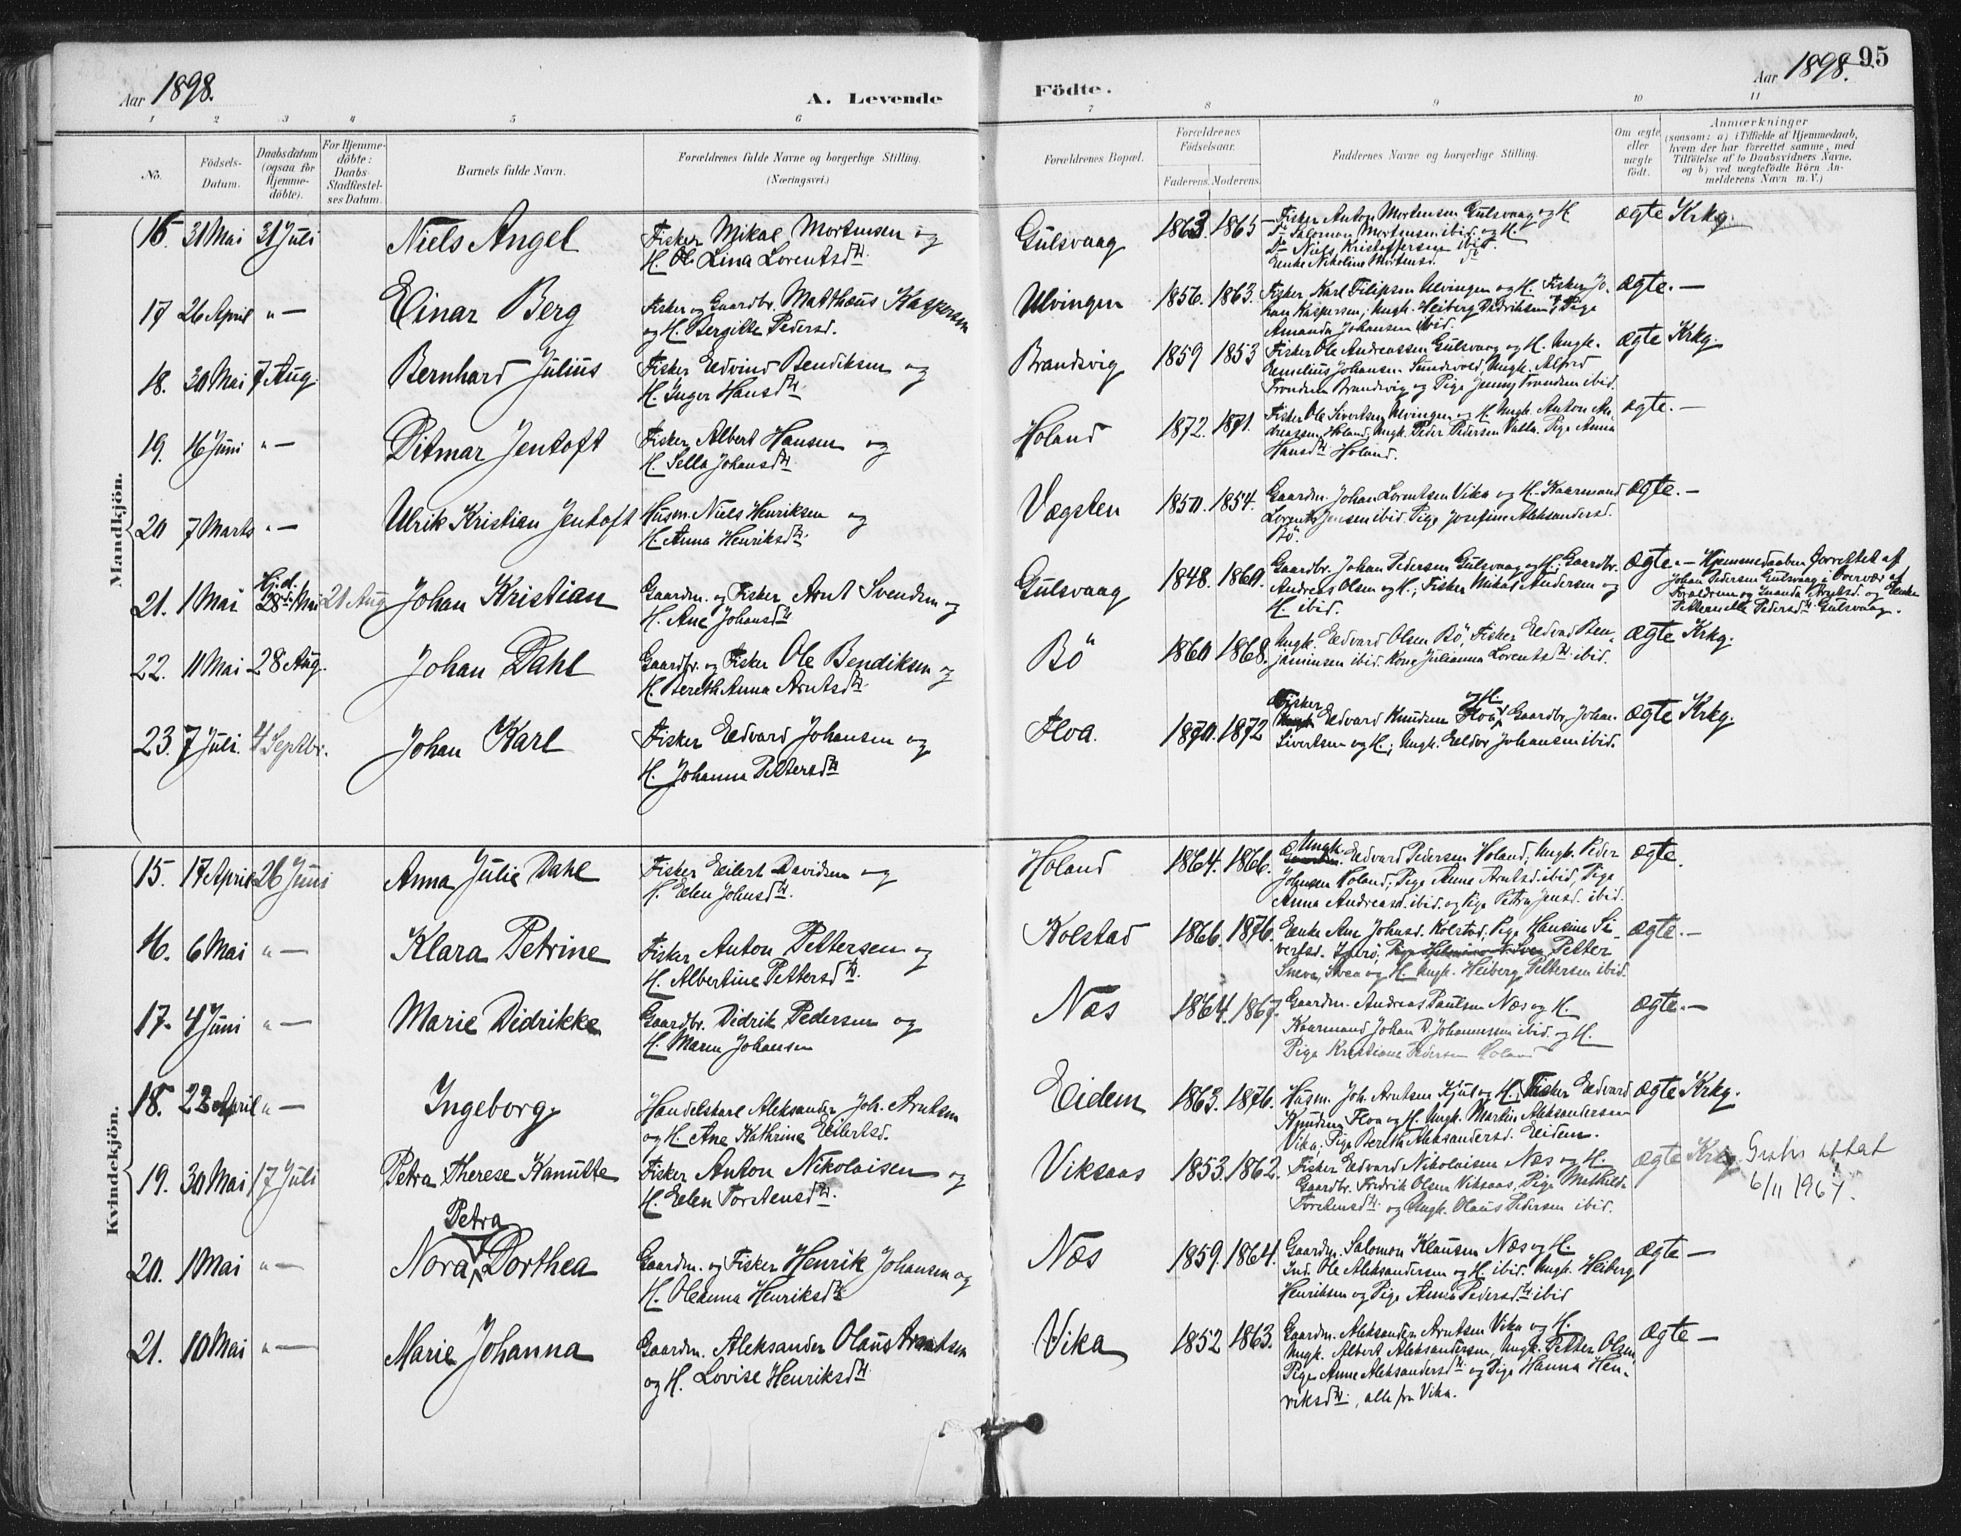 Aar 1898.
A. Levende
Födte.
Aar 1898. 95
1 2 3 4 5 6 7 8 9 10 11
No.
Födsels-Datum.
Daabsdatum (ogsaa for Hjemmedöbte).
For Hjemmedöbte: Daabs Stadfæstelses Datum.
Barnets fulde Navn.
Forældrenes fulde Navne og borgerlige Stilling.
(Næringsvei.)
Forældrenes Bopæl.
Forældrenes Födselsaar.
Faderens. Moderens.
Faddernes Navne og borgerlige Stilling.
Om ægte eller uægte födt.
Anmærkninger
(saasom: a) i Tilfælde af Hjemmedaab,
hvem der har forrettet samme, med
Tilföielse af to Daabsvidners Navne,
og b) ved uægtefödte Börn Anmelderens Navn m. V.)
Mandkjön.
16. 31 Mai 31 Juli Niels Angel Fisker Mikal Mortensen og
H. Lina Lorentsdtr.
Gulsvaag 1863. 1865 Fisker Anton Mortensen Gulsvaag og H
Do Salomon Mortensen ibid. og H.
Do Niels Kristoffersen ibid.
Enke Nikoline Mortensd. do
ægte Krkg.
17 26 April "— Einar Berg Fisker og Gaardbr. Matthæus Kaspersen
og H. Bergitte Pedersd.
Ulvingen 1856. 1863. Fisker Karl Filipsen Ulvingen og H. Fisker Johan
Kaspersen; Ungk. Heiberg Didriksen; Pige
Amanda Johansen ibid.
ægte. —
18. 30 Mai 7 Aug Bernhard Julius Fisker Edvind Bendiksen og
H. Inger Hansdtr.
Brandsvig 1859 1853 Fisker Ole Andreassen Gulsvaag og H. Ungk.
Emelius Johansen Sundsvold, Ungk. Alfred
Trondsen Brandsvig og Pige Jenny Trondsen ibid.
ægte Krkg.
19. 16 Juni "— Ditmar Jentoft Fisker Albert Hansen og
H. Sella Johansdtr.
Holand 1872. 1871. Fisker Ole Sivertsen Ulvingen og H. Ungk. Anton Andreassen
Holand, Ungk. Peder Pedersen Valla. Pige Anna
Hansdtr Holand.
ægte. —
20 7 Marts "— Ulrik Kristian Jentoft Husm. Niels Henriksen og
H. Anna Henriksdtr.
Vægsten 1850. 1854. Gaardm. Johan Lorentsen Vika og H. Kaarmand
Lorents Jensen ibid. Pige Josefine Aleksandersd.
Bö.
ægte. —
21. 1 Mai Hj.d. 28 Mai 21 Aug Johan Kristian Gaardm. og Fisker Arnt Svendsen og
H. Ane Johansdtr
Gulsvaag 1848. 1860. Gaardbr. Johan Pedersen Gulsvaag og H; Gaardbr.
Andreas Olsen og H.; Fisker Mikal Andersen og
H. ibid.
ægte. — Hjemmedaaben forrettet af
Johan Pedersen Gulsvaag i Overvær af
Forældrene og Enke
Petternelle Pedersdtr Gulsvaag.
22. 11 Mai 28 Aug. Johan Dahl Gaardbr. og Fisker Ole Bendiksen og
H. Bereth Anna Arntsdtr.
Bö 1860 1868. Ungk. Edvard Olsen Bö, Fisker Edvard Benjaminsen
ibid. Kone Julianna Lorentsdtr ibid.
ægte Krkg.
23. 7 Juli. 4 Septbr. Johan Karl Fisker Edvard Johansen og
H. Johanna Pettersdtr
Floa. 1870. 1872 Fisker Edvard Knudsen Floa og H. Gaardbr. Johan
Sivertsen og H.; Ungk. Johansen ibid.
ægte Krkg.
Kvindekjön.
15. 17 April 26 Juni Anna Julie Dahl Fisker Eilert Davidsen og
H. Elen Johnsdtr.
Holand 1864. 1866. Ungk. Edvard Pedersen Holand; Ungk. Peder
Johnsen Holand; Pige Anne Arntsd. ibid, Pige
Anna Andreasd. ibid. og Pige Petra Jensd. ibid.
ægte.
16. 6 Mai "— Klara Petrine Fisker Anton Pettersen og
H. Albertine Pettersdtr.
Kolstad 1866. 1876. Enke Ane Johnsd. Kolstad, Pige Hansine Sivertsd.
Petter
og H. Ungk. Heiberg Pettersen ibid.
ægte. —
17. 4 Juni "— Marie Didrikke Gaardbr. Didrik Pedersen og
H. Maren Johansen
Næs 1864. 1867. Gaardm. Andreas Paulsen Næs og H.
Kaarmand Johan D. Johannessen ibid. og H.
Pige Kristiane Pedersen Holand
ægte. —
18. 22 April "— Ingeborg Handelskarl Aleksander Joh. Arntsen
og H. Ane Kathrine Eilertsd.
Eidem 1863. 1876. Husm. Joh. Arntsen Kjul og H. Fisker Edvard
Knudsen Floa og H. Ungk. Martin Aleksandersen
Vika; Pige Bereth Aleksandersd. Eidem.
ægte Krkg.
19. 30 Mai 17 Juli Petra Therese Kanutte Fisker Anton Nikolaisen og
H. Elen Torstensdtr.
Viksaas 1853. 1862. Fisker Edvard Nikolaisen Næs og H.
Gaardbr. Fredrik Olsen Viksaas, Pige Mathilde
Torstensdtr. og Ungk. Olaus Pedersen ibid.
ægte Krkg. Gratis attest
6/11 1967.
20. 1 Mai "— Nora Petra Dorthea Gaardm. og Fisker Henrik Johansen og
H. Oleanna Henriksdtr.
Næs 1859. 1864. Gaardm. Salomon Klausen Næs og H.
Ind. Ole Aleksandersen og H. ibid. Ungk. Heiberg
Henriksen og Pige Anna Pedersdtr ibid
ægte —
21. 10 Mai "— Marie Johanna Gaardm. Aleksander Olaus Arntsen
og H. Lovise Henriksdtr.
Vika 1852 1863. Gaardm. Aleksander Arntsen Vika og H.
Ungk. Albert Aleksandersen, Ungk. Petter Olsen,
Pige Anne Aleksandersdtr og Pige Hanna Henriksdtr.,
alle fra Vika.
ægte —